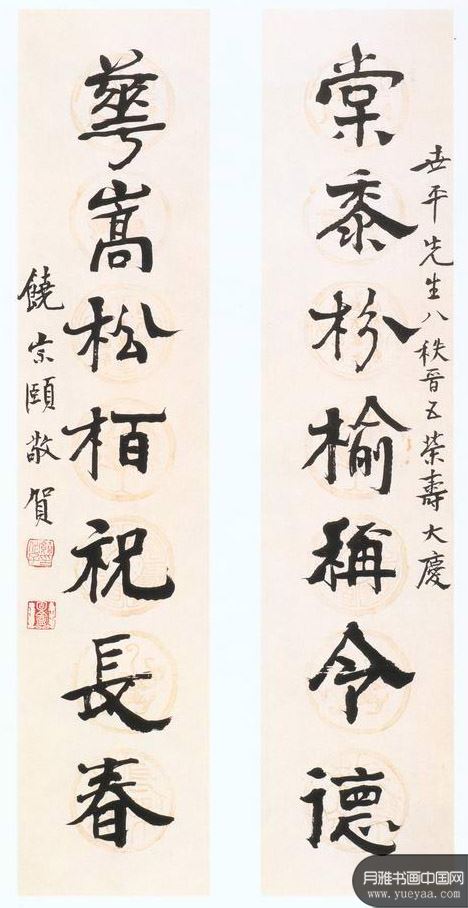 世平先生八秩晉五榮壽大慶
棠黍枌榆稱令德
華嵩松栢祝長春
饒宗頤敬賀
月雅书画中国网
www.yueyaa.com